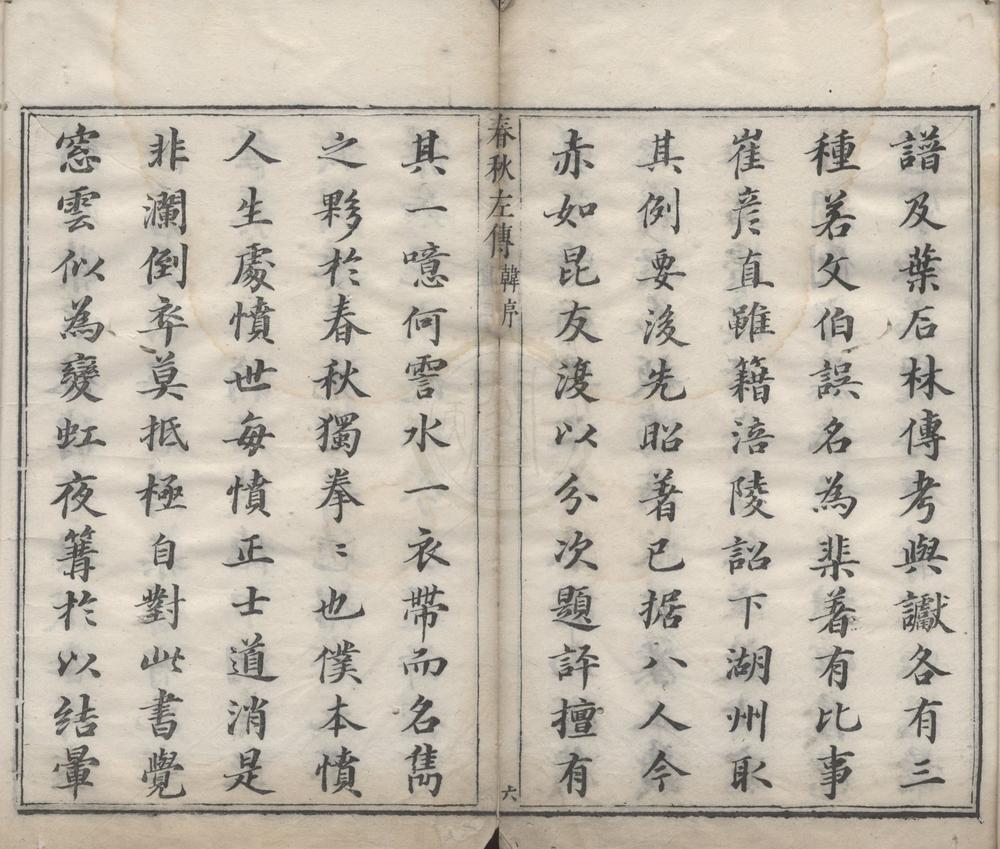 譜及葉石林傳考與讞各有三
種若文伯誤名為棐著有比事
崔彥直雖籍涪陵詔下湖州取
其例要後先昭著已据八人今
赤如昆友渡以分次題評擅有
春秋左傳 韓序 六
其一噫何詈水一衣帶而名雋
之夥於春秋獨拳〻也僕本憤
人生處憤世每憤正士道消是
非瀾倒卒莫抵極自對此書覺
窓雲似為變虹夜篝於以結暈